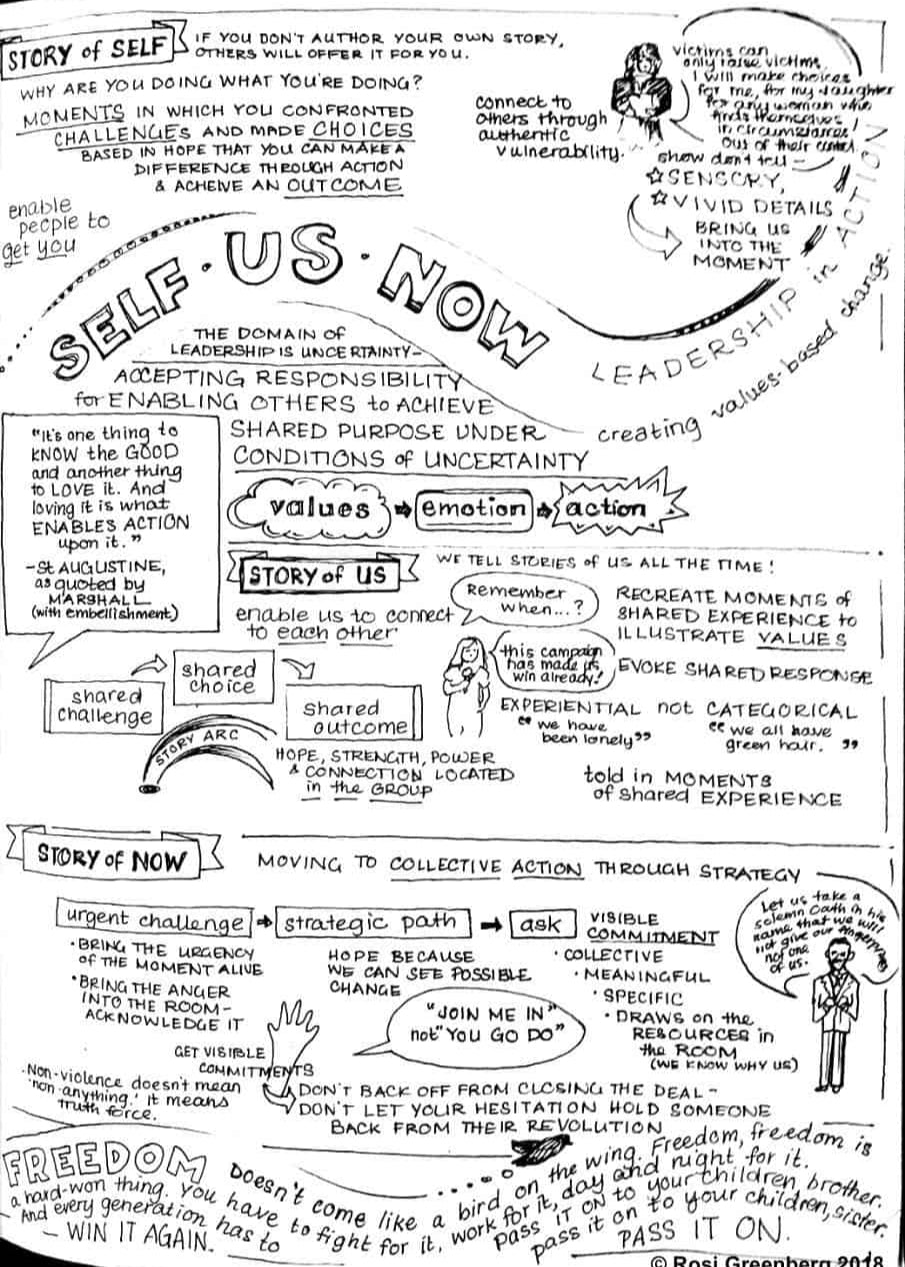 STORY of SELF
IF YOU DON'T AUTHOR YOUR OWN STORY,
OTHERS WILL OFFER IT FOR YOU.
WHY ARE YOU DOING WHAT YOU'RE DOING?
MOMENTS IN WHICH YOU CONFRONTED
CHALLENGES AND MADE CHOICES
BASED IN HOPE THAT YOU CAN MAKE A
DIFFERENCE THROUGH ACTION
& ACHEIVE AN OUTCOME
enable
people to
get you
connect to
others through
authentic
vulnerability.
victims can
only raise victims.
I will make choices
for me, for my daughter
for any woman who
finds themselves
in circumstances
out of their control.
show don't tell —
SENSORY,
VIVID DETAILS
BRING US
INTO THE
MOMENT
SELF · US · NOW
LEADERSHIP in ACTION
creating values-based change.
THE DOMAIN OF
LEADERSHIP IS UNCERTAINTY —
ACCEPTING RESPONSIBILITY
for ENABLING OTHERS to ACHIEVE
SHARED PURPOSE UNDER
CONDITIONS of UNCERTAINTY
"It's one thing to
KNOW the GOOD
and another thing
to LOVE it. And
loving it is what
ENABLES ACTION
upon it."
- St AUGUSTINE,
as quoted by
MARSHALL
(with embellishment)
values
emotion
action
STORY of US
WE TELL STORIES of US ALL THE TIME!
enable us to connect
to each other
Remember
when...?
RECREATE MOMENTS of
SHARED EXPERIENCE to
ILLUSTRATE VALUES
this campaign
has made us
win already!
EVOKE SHARED RESPONSE
EXPERIENTIAL not CATEGORICAL
"we have
been lonely"
"we all have
green hair."
told in MOMENTS
of shared EXPERIENCE
shared
challenge
shared
choice
shared
outcome
STORY ARC
HOPE, STRENGTH, POWER
& CONNECTION LOCATED
in the GROUP
STORY of NOW
MOVING TO COLLECTIVE ACTION THROUGH STRATEGY
urgent challenge
strategic path
ask
VISIBLE
COMMITMENT
· BRING THE URGENCY
OF THE MOMENT ALIVE
· BRING THE ANGER
INTO THE ROOM -
ACKNOWLEDGE IT
HOPE BECAUSE
WE CAN SEE POSSIBLE
CHANGE
· COLLECTIVE
· MEANINGFUL
· SPECIFIC
· DRAWS on the
RESOURCES in
the ROOM
(WE KNOW WHY US)
Let us take a
solemn oath in his
name that we will
not give our fingerprints
not one
of us.
"JOIN ME IN"
not "YOU GO DO"
GET VISIBLE
COMMITMENTS
Non-violence doesn't mean
'non-anything.' it means
truth force.
DON'T BACK OFF FROM CLOSING THE DEAL -
DON'T LET YOUR HESITATION HOLD SOMEONE
BACK FROM THEIR REVOLUTION
FREEDOM Doesn't come like a bird on the wing. Freedom, freedom is
a hard-won thing. You have to fight for it, work for it, day and night for it.
And every generation has to
— WIN IT AGAIN.
Pass IT ON TO your children, brother.
pass it on to your children, sister.
PASS IT ON.
© Rosi Greenberg 2018